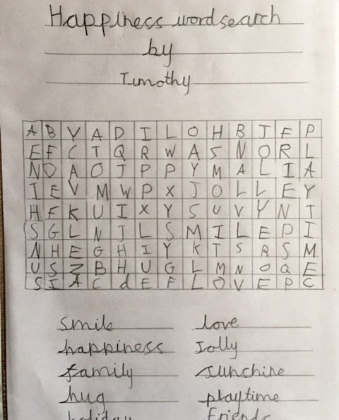 Happiness wordsearch
by
Timothy
A B V A D I L O H B T F P
E F C T Q R W A S N O R L
N D A O J P P Y M A L I A
I E V M W P X J O L L E Y
H F K U I X Y S U V Y N T
S G L N J L S M I L E P I
N H E G H I Y K T S R S M
U S Z B H U G L M N O Q E
S I A C d E F L O V E P C
smile love
happiness Jolly
family sunshine
hug playtime
holiday Friends